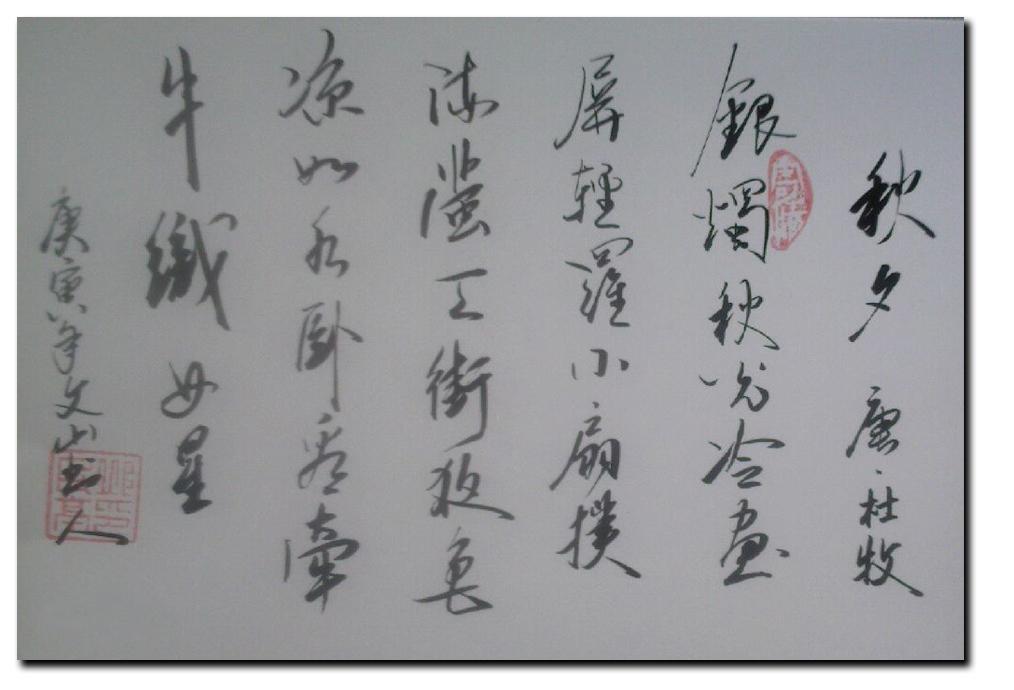 秋夕 唐·杜牧
銀燭秋光冷畫
屏輕羅小扇撲
流螢天街夜色
凉如水卧看牽
牛織女星
庚寅年文山书人